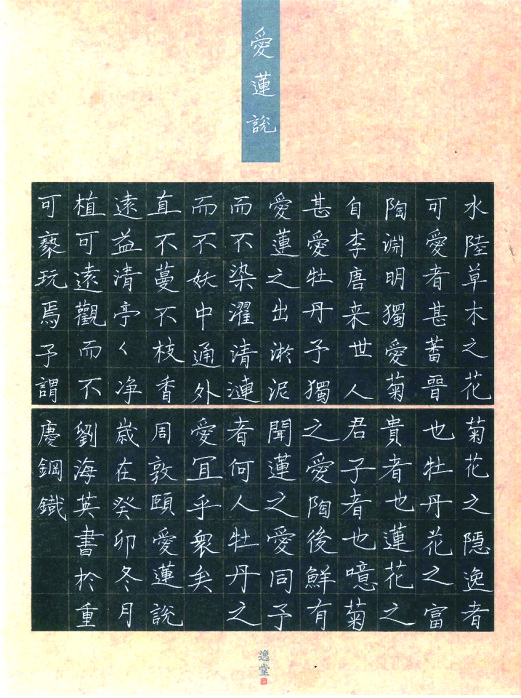 愛蓮說
水陸草木之花
可愛者甚蕃晉
陶淵明獨愛菊
自李唐来世人
甚愛牡丹予獨
愛蓮之出淤泥
而不染濯清漣
而不妖中通外
直不蔓不枝香
遠益清亭々净
植可遠觀而不
可褻玩焉予謂
菊花之隱逸者
也牡丹花之富
貴者也蓮花之
君子者也噫菊
之愛陶後鮮有
聞蓮之愛同予
者何人牡丹之
愛宜乎衆矣
周敦頤愛蓮說
歲在癸卯冬月
劉海英書於重
慶鋼鐵
逸堂